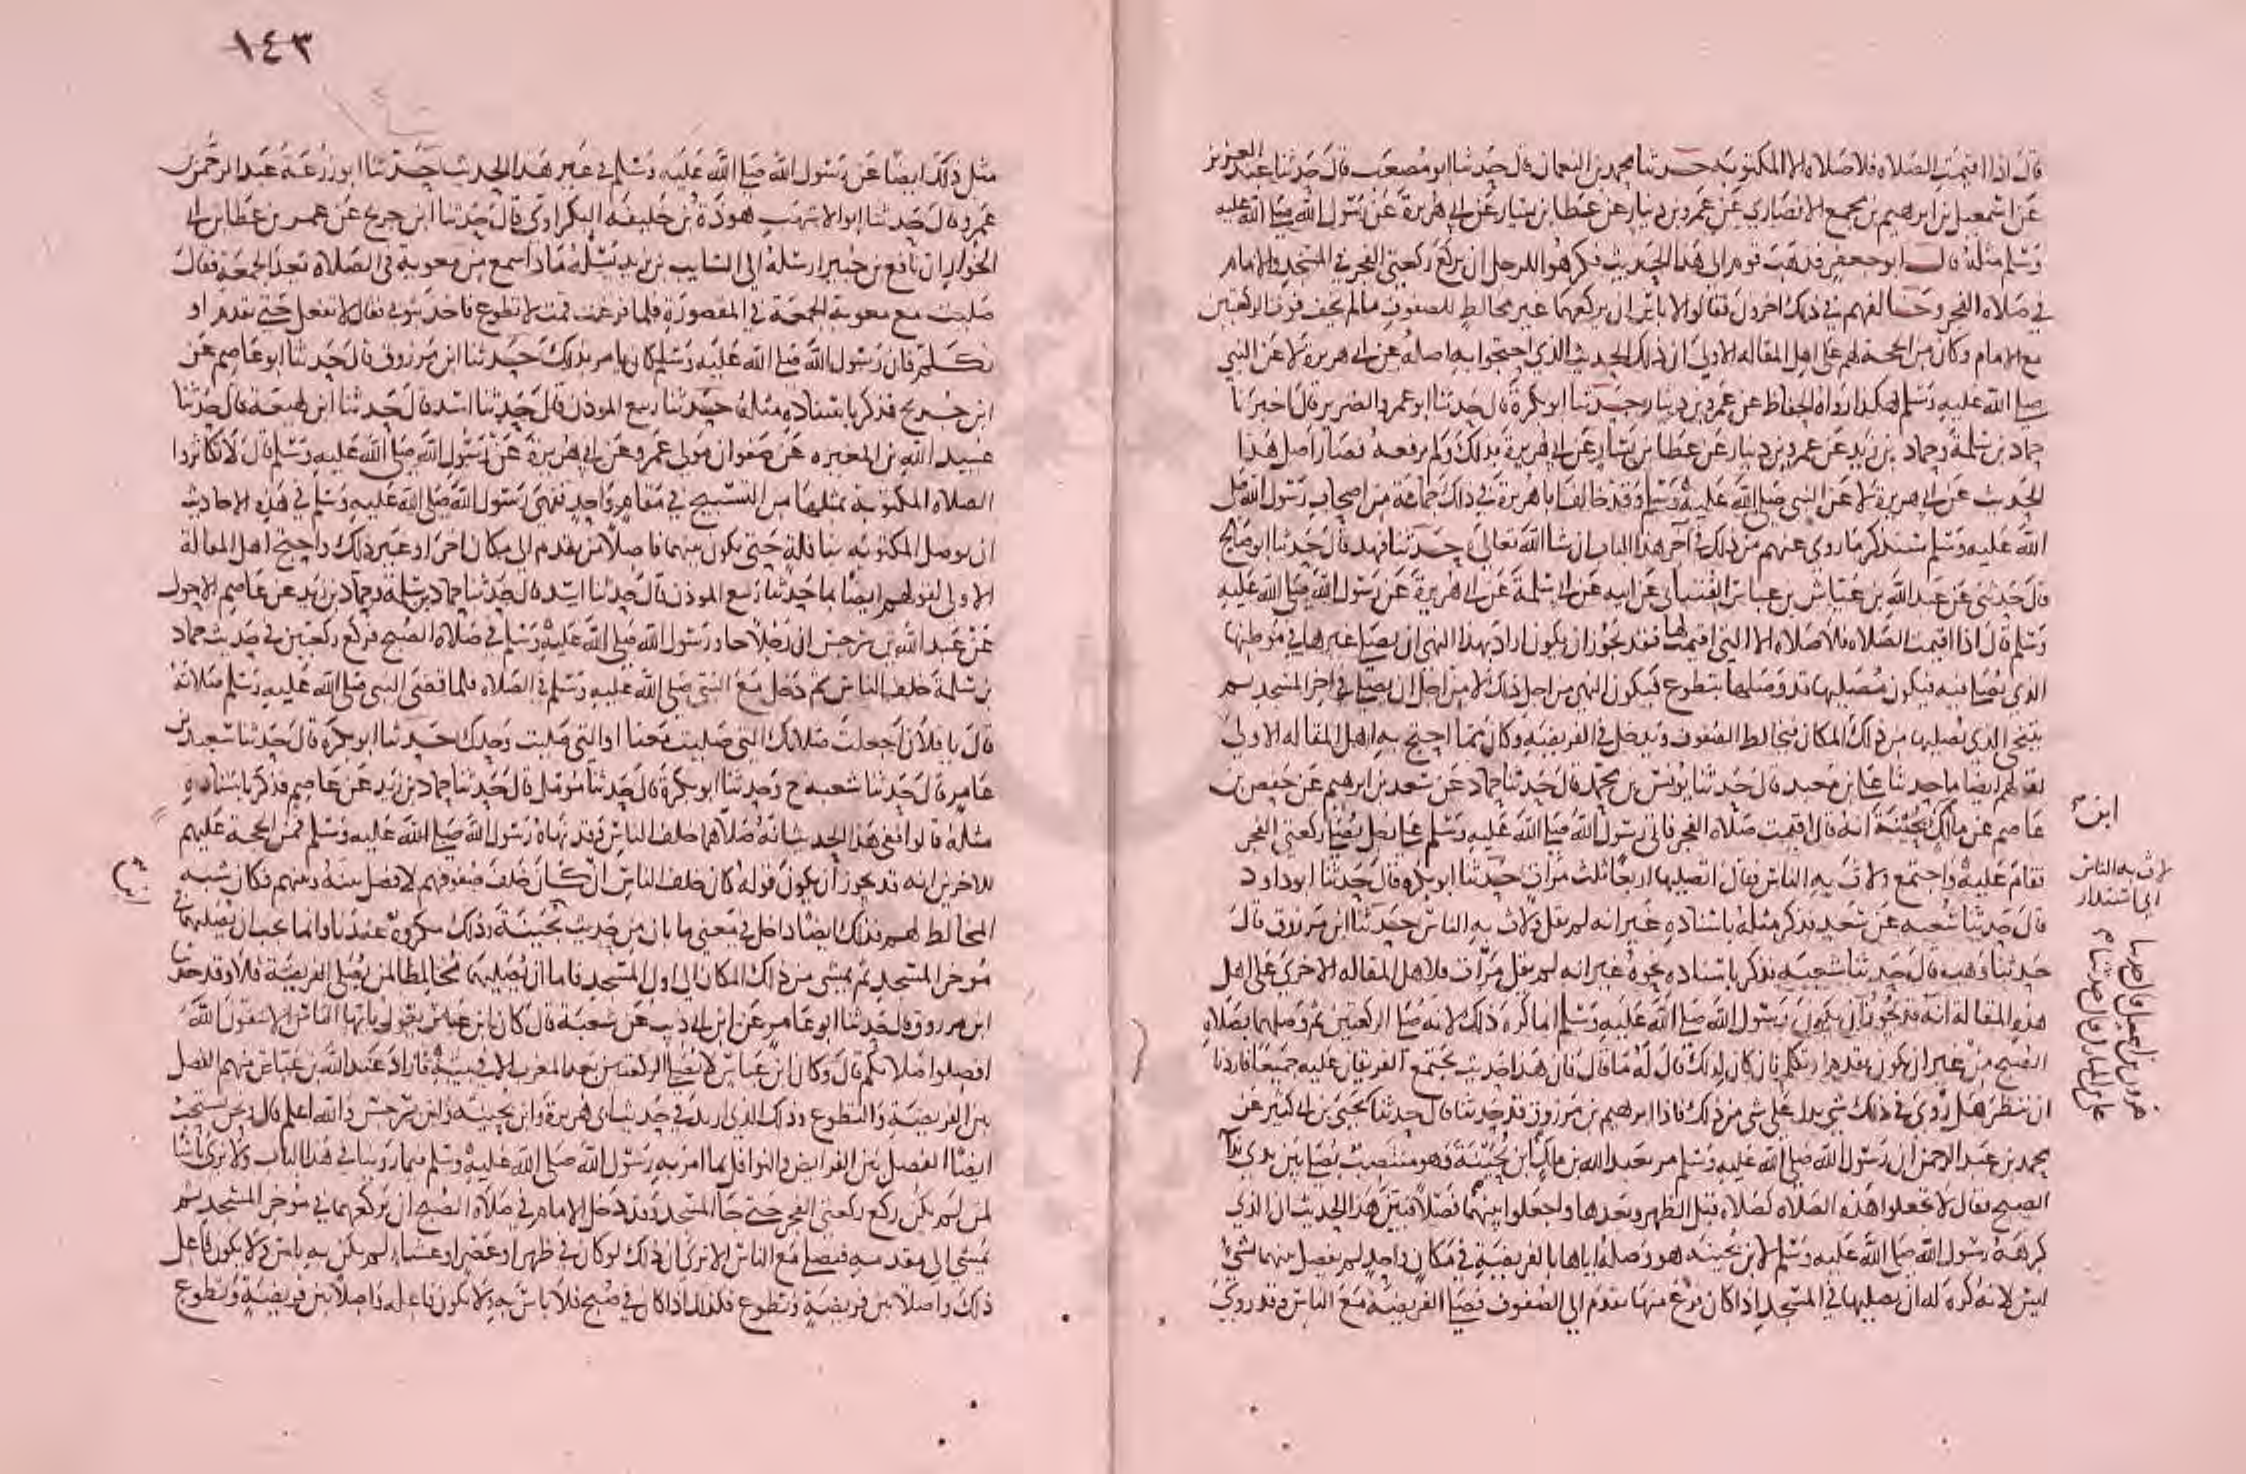 قال اذا اقيمت الصلاه فلا صلاه الا المكتوبه حدثنا محمد بن النعمان قال حدثنا ابو مصعب قال حدثنا عبد العزيز
عن اسمعيل بن ابرهيم بن مجمع الانصاري عن عمرو بن دينار عن عطا بن يسار عن ابي هريرة عن رسول الله صلى الله عليه
وسلم مثله قال ابو جعفر فذهب قوم الى هذا الحديث فكرهوا للرجل ان يركع ركعتي الفجر في المسجد والامام
في صلاه الفجر وخالفهم في ذلك اخرون فقالوا لا باس ان يركعهما غير مخالط للصفوف ما لم يخف فوت الركعتين
مع الامام وكان من الحجة لهم على اهل المقاله الاولى ان ذلك الحديث الذي احتجوا به اصله عن ابي هريرة لا عن النبي
صلى الله عليه وسلم هكذا رواه الحفاظ عن عمرو بن دينار حدثنا ابو بكرة قال حدثنا ابو عمر الضرير قال اخبرنا
حماد بن سلمة وحماد بن زيد عن عمرو بن دينار عن عطا بن يسار عن ابي هريرة بذلك ولم يرفعه فصار اصل هذا
الحديث عن ابي هريرة لا عن النبي صلى الله عليه وسلم وقد خالف ابا هريرة في ذلك جماعة من اصحاب رسول الله صلى
الله عليه وسلم سنذكر ما روي عنهم من ذلك في آخر هذا الباب ان شا الله تعالى حدثنا فهد قال حدثنا ابو صالح
قال حدثني عن عبد الله بن عياش بن عباس القتباني عن ابيه عن ابي سلمة عن ابي هريرة عن رسول الله صلى الله عليه
وسلم قال اذا اقيمت الصلاه فلا صلاه الا التي اقيمت لها فقد يجوز ان يكون اراد بهذا النهي ان يصلى غيرها في موطنها
الذي يصلى فيه فيكون مصليها قد وصلها بتطوع فيكون النهي من اجل ذلك لا من اجل ان يصلى في اخر المسجد ثم
يتنحى الذي يصليها من ذلك المكان فيخالط الصفوف ويدخل في الفريضة وكان مما احتج به اهل المقاله الاولى
لقولهم ايضا ما حدثنا علي بن معبد قال حدثنا يونس بن محمد قال حدثنا حماد عن سعد بن ابرهيم عن حفص بن
عاصم عن مالك بحينة انه قال اقيمت صلاه الفجر فاتى رسول الله صلى الله عليه وسلم على رجل يصلي ركعتي الفجر
فقام عليه واجتمع ولاث به الناس فقال اتصليها اربعا ثلث مرات حدثنا ابو بكره قال حدثنا ابو داود
قال حدثنا شعبه عن سعد فذكر مثله باسناده غير انه لم يقل ولاث به الناس حدثنا ابن مرزوق قال
حدثنا وهب قال حدثنا شعبه فذكر باسناده نحوه غير انه لم يقل مرات فلاهل المقاله الاخرى على اهل
هذه المقالة انه قد يجوز ان يكون رسول الله صلى الله عليه وسلم انما كره ذلك لانه صلى الركعتين ثم وصلهما بصلاه
الصبح من غير ان يكون تقدم او تكلم فان كان لذلك قال له ما قال فان هذا حديث يجتمع الفريقان عليه جميعا فاردنا
ان ننظر هل روي في ذلك شي يدل على شي من ذلك فاذا ابرهيم بن مرزوق قد حدثنا قال حدثنا يحيى بن ابي كثير عن
محمد بن عبد الرحمن ان رسول الله صلى الله عليه وسلم مر بعبد الله بن مالك ابن بحينة وهو منتصب يصلي بين يدي ندآ
الصبح فقال لا تجعلوا هذه الصلاه كصلاه قبل الظهر وبعدها واجعلوا بينهما فصلا فبين هذا الحديث ان الذي
كرهه رسول الله صلى الله عليه وسلم لابن بحينه هو وصله اياها بالفريضة في مكان واحد لم يفصل بينهما بشئ
ليس لانه كره له ان يصليها في المسجد اذا كان فرغ منها تقدم الى الصفوف فصلى الفريضة مع الناس وقد روي
ابن
لاث به الناس
اي استدار
١٤٣
مثل ذلك ايضا عن رسول الله صلى الله عليه وسلم في غير هذا الحديث حدثنا ابو زرعة عبد الرحمن بن
عمرو قال حدثنا ابو الاشهب هوذة بن خليفه البكراوي قال حدثنا ابن جريج عن عمر بن عطا بن ابي
الخوار ان نافع بن جبير ارسله الى السايب بن يزيد يسله ماذا سمع من معوية في الصلاة بعد الجمعة فقال
صليت مع معوية الجمعة في المقصورة فلما فرغت قمت لاتطوع فاخذ بثوبي فقال لا تفعل حتى تقدم او
تكلم فان رسول الله صلى الله عليه وسلم كان يامر بذلك حدثنا ابن مرزوق قال حدثنا ابو عاصم عن
ابن جريج فذكر باسناده مثله حدثنا ربيع الموذن قال حدثنا اسد قال حدثنا ابن لهيعة قال حدثنا
عبيد الله بن المغيره عن صفوان مولى عمرو عن ابي هريرة عن رسول الله صلى الله عليه وسلم قال لا تكاثروا
الصلاه المكتوبة بمثلها من التسبيح في مقام واحد فنهى رسول الله صلى الله عليه وسلم في هذه الاحاديث
ان يوصل المكتوبه بنافلة حتى يكون بينهما فاصلا من تقدم الى مكان اخر او غير ذلك واحتج اهل المقالة
الاولى لقولهم ايضا بما حدثنا ربيع الموذن قال حدثنا اسد قال حدثنا حماد بن سلمة وحماد بن زيد عن عاصم الاحول
عن عبد الله بن سرجس ان رجلا جا ورسول الله صلى الله عليه وسلم في صلاه الصبح فركع ركعتين في حديث حماد
بن سلمة خلف الناس ثم دخل مع النبي صلى الله عليه وسلم في الصلاه فلما قضى النبي صلى الله عليه وسلم صلاته
قال يا فلان اجعلت صلاتك التي صليت معنا او التي صليت وحدك حدثنا ابو بكرة قال حدثنا سعيد بن
عامر قال حدثنا شعبه ح وحدثنا ابو بكرة قال حدثنا مومل قال حدثنا حماد بن زيد عن عاصم فذكر باسناده
مثله قالوا ففي هذا الحديث انه صلاهما خلف الناس وقد نهاه رسول الله صلى الله عليه وسلم فمن الحجة عليهم
للاخرين انه قد يجوز ان يكون قوله كان خلف الناس اي كان خلف صفوفهم لا فصل بينه وبينهم فكان شبه
المخالط لهم فذلك ايضا داخل في معنى ما بان من حديث بحينة وذلك مكروه عندنا وانما يجب ان يصليهما في
موخر المسجد ثم يمشي من ذلك المكان الى اول المسجد فاما ان يصليهما مخالطا لمن يصلي الفريضة فلا وقد حدثنا
ابن مرزوق قال حدثنا ابو عامر عن ابن ابي ذيب عن شعبة قال كان ابن عباس يقول يا ايها الناس الا تتقون الله
افصلوا صلاتكم قال وكان ابن عباس لا يصلي الركعتين بعد المغرب الا في بيته فاراد عبد الله بن عباس منهم الفصل
بين الفريضة والتطوع وذلك الذي اريد في حديث ابي هريرة وابن بحينه وابن سرجس والله اعلم قال ونحن نستحب
ايضا الفصل بين الفرايض والنوافل بما امر به رسول الله صلى الله عليه وسلم فيما روينا في هذا الباب ولا نرى باسا
لمن لم يكن ركع ركعتي الفجر حتى جآ المسجد وقد دخل الامام في صلاه الصبح ان يركعهما في موخر المسجد ثم
يمشي الى مقدمه فيصلي مع الناس الا ترى ان ذلك لو كان في ظهر او عصر او عشاء لم يكن به باس ولا يكون فاعل
ذلك واصلا بين فريضة وتطوع فكذلك اذا كان في صبح فلا باس به ولا يكون فاعله واصلا بين فريضة وتطوع